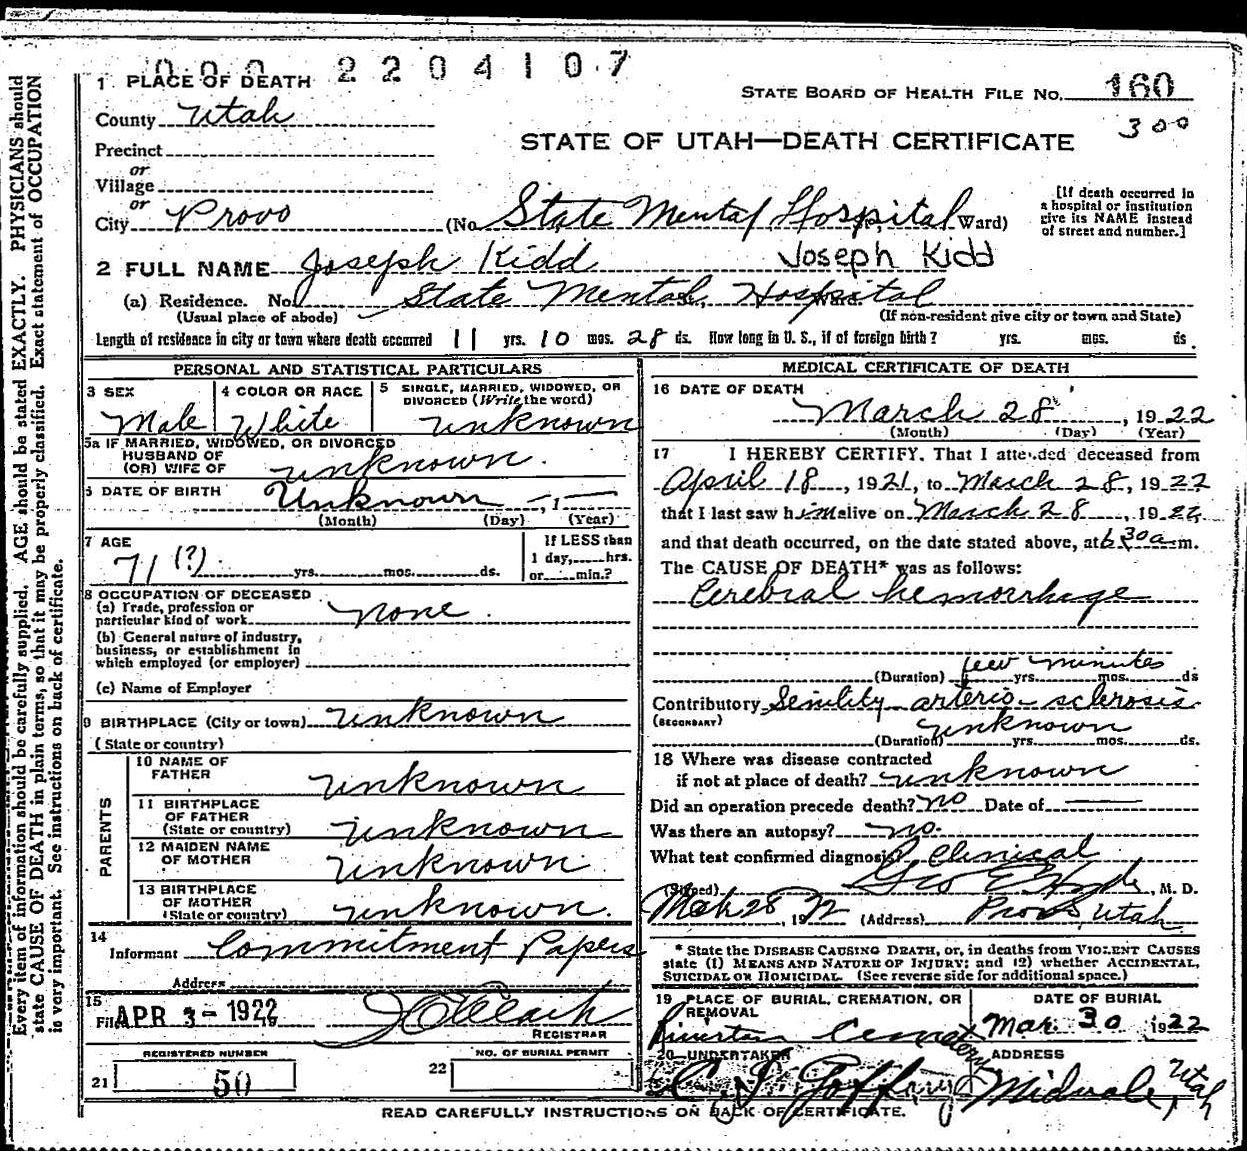 000 2204107
1 PLACE OF DEATH
STATE BOARD OF HEALTH FILE NO. 160
300
County Utah
STATE OF UTAH—DEATH CERTIFICATE
Precinct
or
Village
or
City Provo (No. State Mental Hospital Ward)
[If death occurred in a hospital or institution give its NAME instead of street and number.]
2 FULL NAME Joseph Kidd Joseph Kidd
(a) Residence. No. State Mental Hospital
(Usual place of abode) (If non-resident give city or town and State)
Length of residence in city or town where death occurred 11 yrs. 10 mos. 28 ds. How long in U. S., if of foreign birth? yrs. mos. ds.
PERSONAL AND STATISTICAL PARTICULARS
3 SEX
Male
4 COLOR OR RACE
White
5 SINGLE, MARRIED, WIDOWED, OR DIVORCED (Write the word)
unknown
5a IF MARRIED, WIDOWED, OR DIVORCED
HUSBAND OF
(OR) WIFE OF unknown.
6 DATE OF BIRTH Unknown —, 1 —
(Month) (Day) (Year)
7 AGE
71 (?) yrs. mos. ds.
If LESS than
1 day, hrs.
or min.?
8 OCCUPATION OF DECEASED
(a) Trade, profession or
particular kind of work none.
(b) General nature of industry,
business, or establishment in
which employed (or employer)
(c) Name of Employer
9 BIRTHPLACE (City or town) unknown
(State or country)
PARENTS
10 NAME OF
FATHER unknown
11 BIRTHPLACE
OF FATHER
(State or country) unknown
12 MAIDEN NAME
OF MOTHER unknown
13 BIRTHPLACE
OF MOTHER
(State or country) unknown.
14
Informant Commitment Papers
Address
15
Filed APR 3 - 1922
REGISTRAR
REGISTERED NUMBER
21 50
NO. OF BURIAL PERMIT
22
MEDICAL CERTIFICATE OF DEATH
16 DATE OF DEATH
March 28, 1922
(Month) (Day) (Year)
17 I HEREBY CERTIFY, That I attended deceased from
April 18, 1921, to March 28, 1922
that I last saw him alive on March 28, 1922
and that death occurred, on the date stated above, at 6 30 a m.
The CAUSE OF DEATH* was as follows:
Cerebral hemorrhage
few minutes
(Duration) yrs. mos. ds
Contributory Senility arterio-sclerosis
(SECONDARY)
unknown
(Duration) yrs. mos. ds.
18 Where was disease contracted
if not at place of death? unknown
Did an operation precede death? no Date of —
Was there an autopsy? no.
What test confirmed diagnosis? Clinical
(Signed) Geo E Hyde, M. D.
Mch 28, 1922 (Address) Provo Utah
* State the DISEASE CAUSING DEATH, or, in deaths from VIOLENT CAUSES
state (1) MEANS AND NATURE OF INJURY; and (2) whether ACCIDENTAL,
SUICIDAL OR HOMICIDAL. (See reverse side for additional space.)
19 PLACE OF BURIAL, CREMATION, OR
REMOVAL
Riverton Cemetery
DATE OF BURIAL
Mar. 30 1922
20 UNDERTAKER
C. J. Goff
ADDRESS
Midvale, Utah
READ CAREFULLY INSTRUCTIONS ON BACK OF CERTIFICATE.
Every item of information should be carefully supplied. AGE should be stated EXACTLY. PHYSICIANS should
state CAUSE OF DEATH in plain terms, so that it may be properly classified. Exact statement of OCCUPATION
is very important. See instructions on back of certificate.